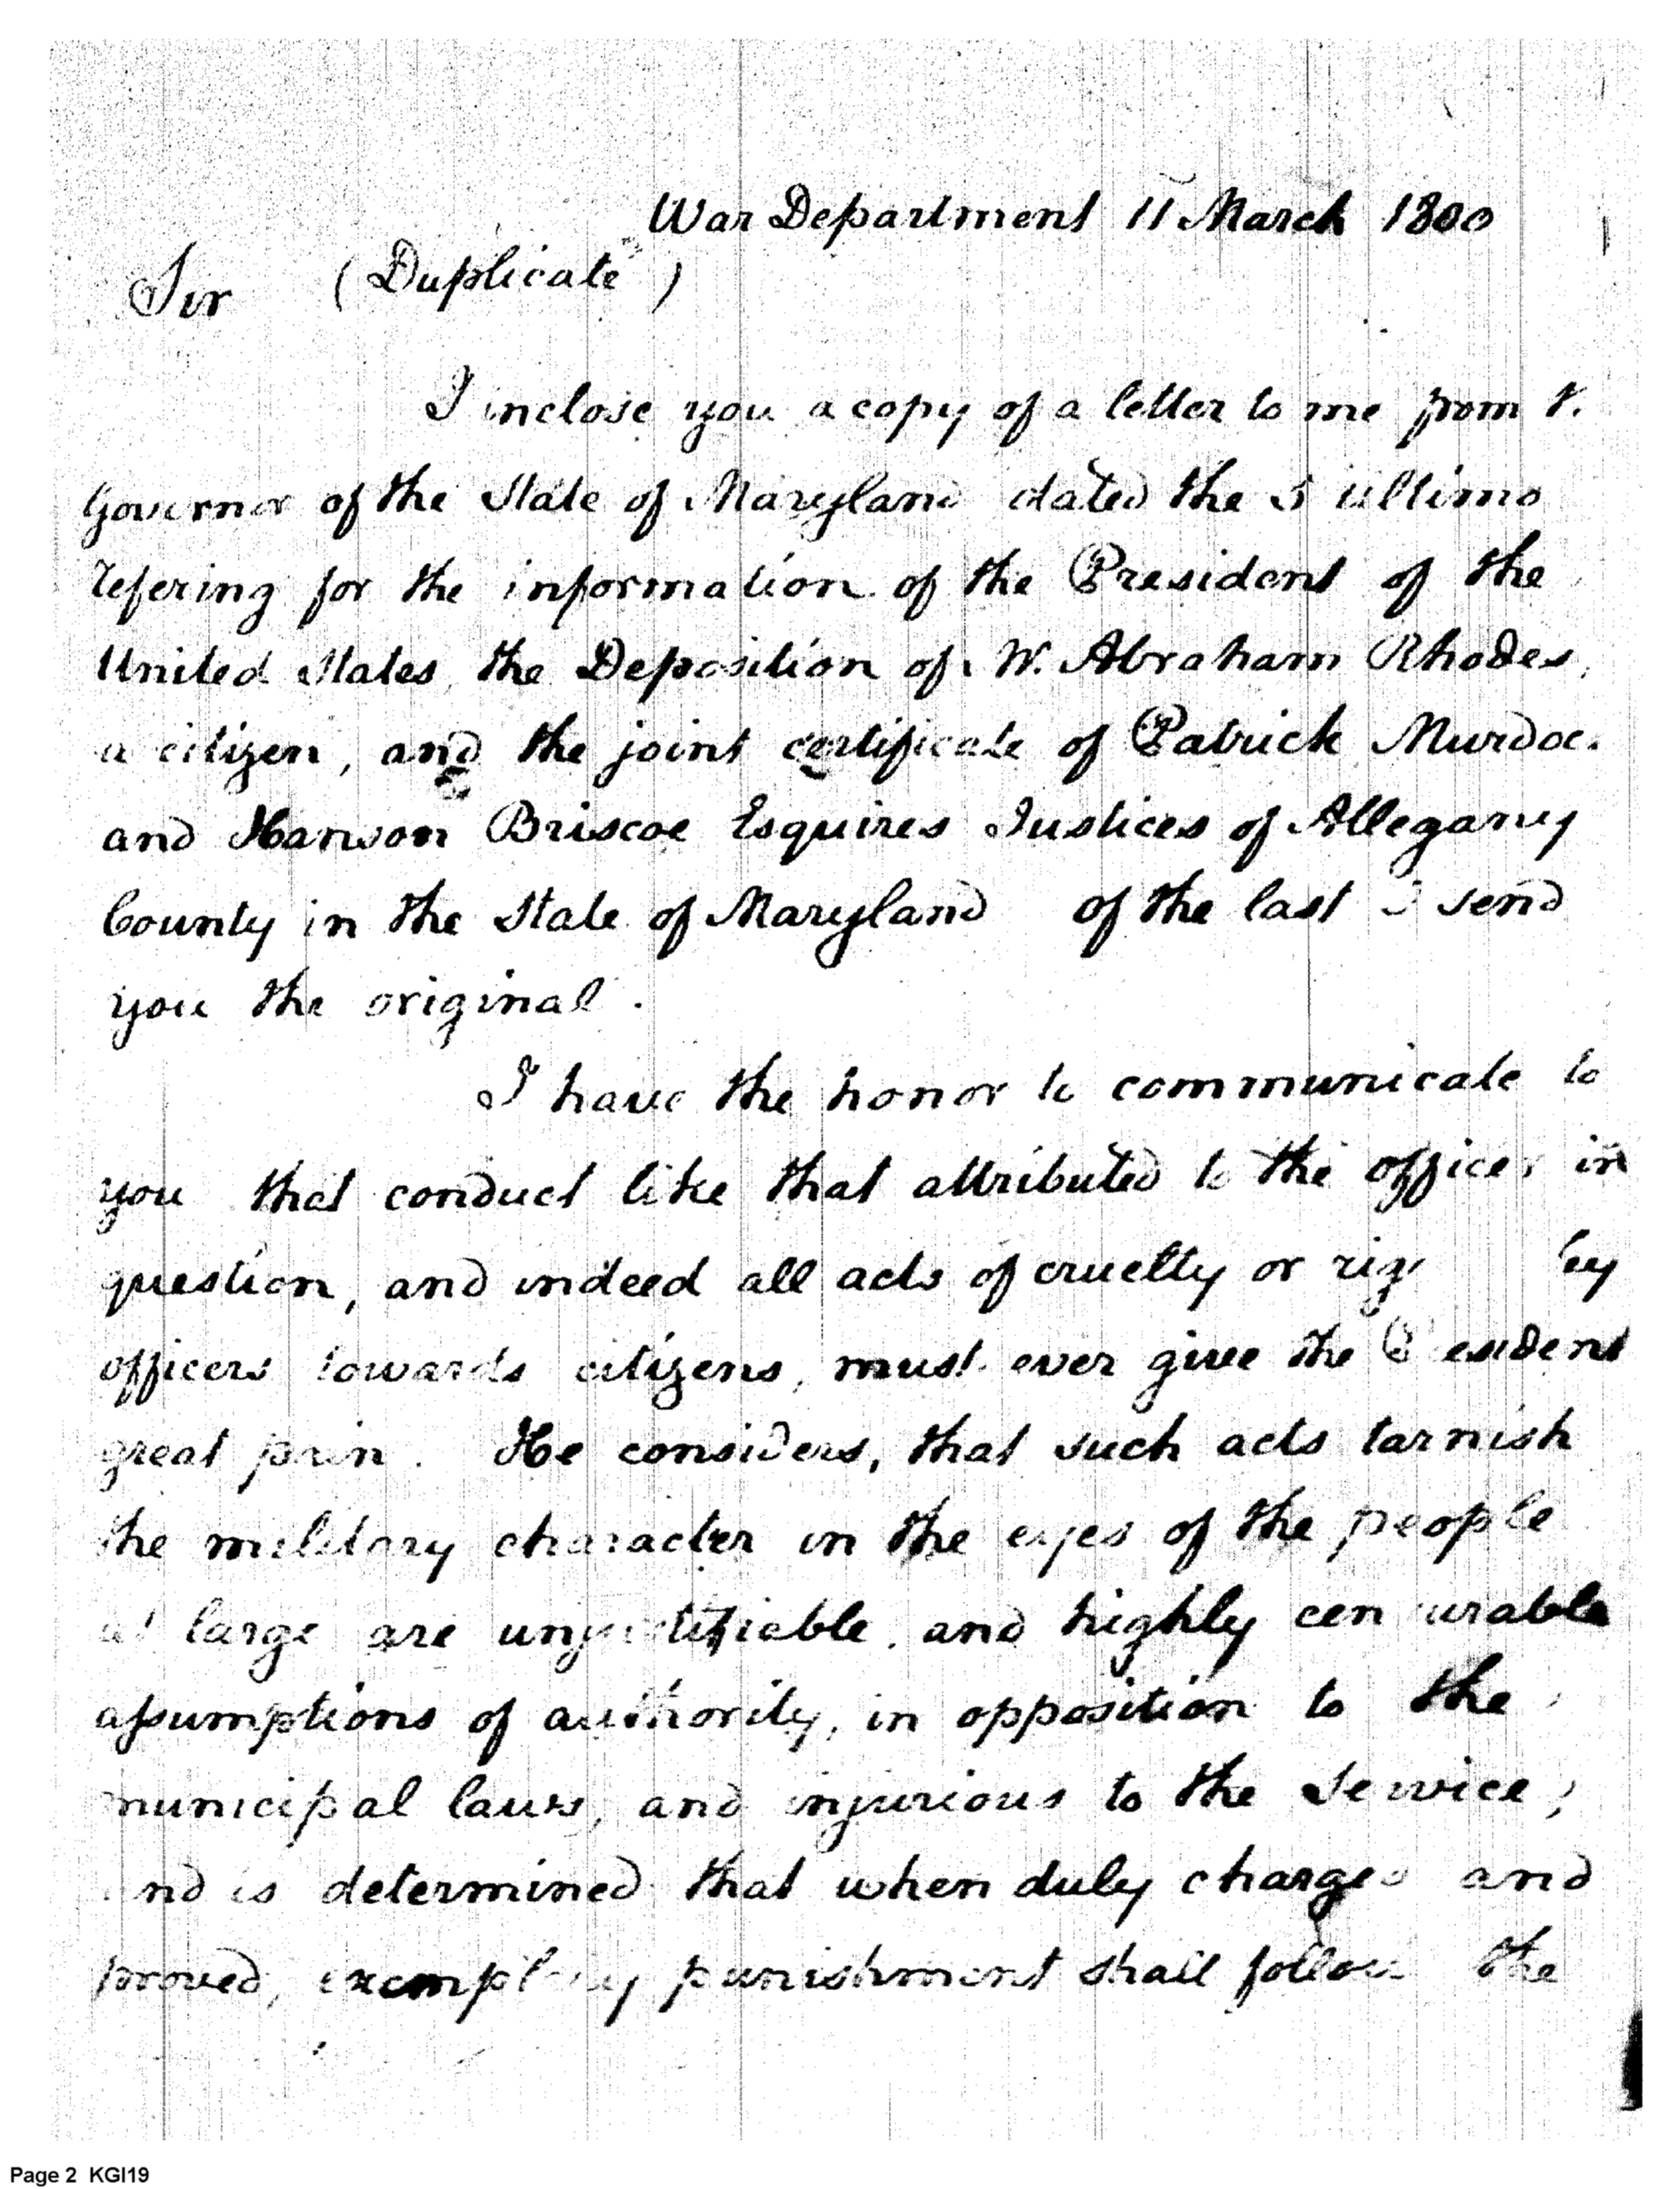 War Department 11 March 1800
Sir (Duplicate)
I inclose you a copy of a letter to me from t.
Governor of the State of Maryland dated the 5 ultimo
refering for the information of the President of the
United States, the Deposition of W. Abraham Rhodes,
a citizen, and the joint certificate of Patrick Murdoc.
and Hanson Briscoe Esquires Justices of Allegany
County in the State of Maryland of the last I send
you the original.
I have the honor to communicate to
you that conduct like that attributed to the officer in
question, and indeed all acts of cruelty or by
officers towards citizens, must ever give the President
great pain. He considers, that such acts tarnish
the military character in the eyes of the people
at large are unjustifiable, and highly censurable
assumptions of authority, in opposition to the
municipal laws, and injurious to the service;
and is determined that when duly charged and
proved, exemplary punishment shall follow the
Page 2 KGI19